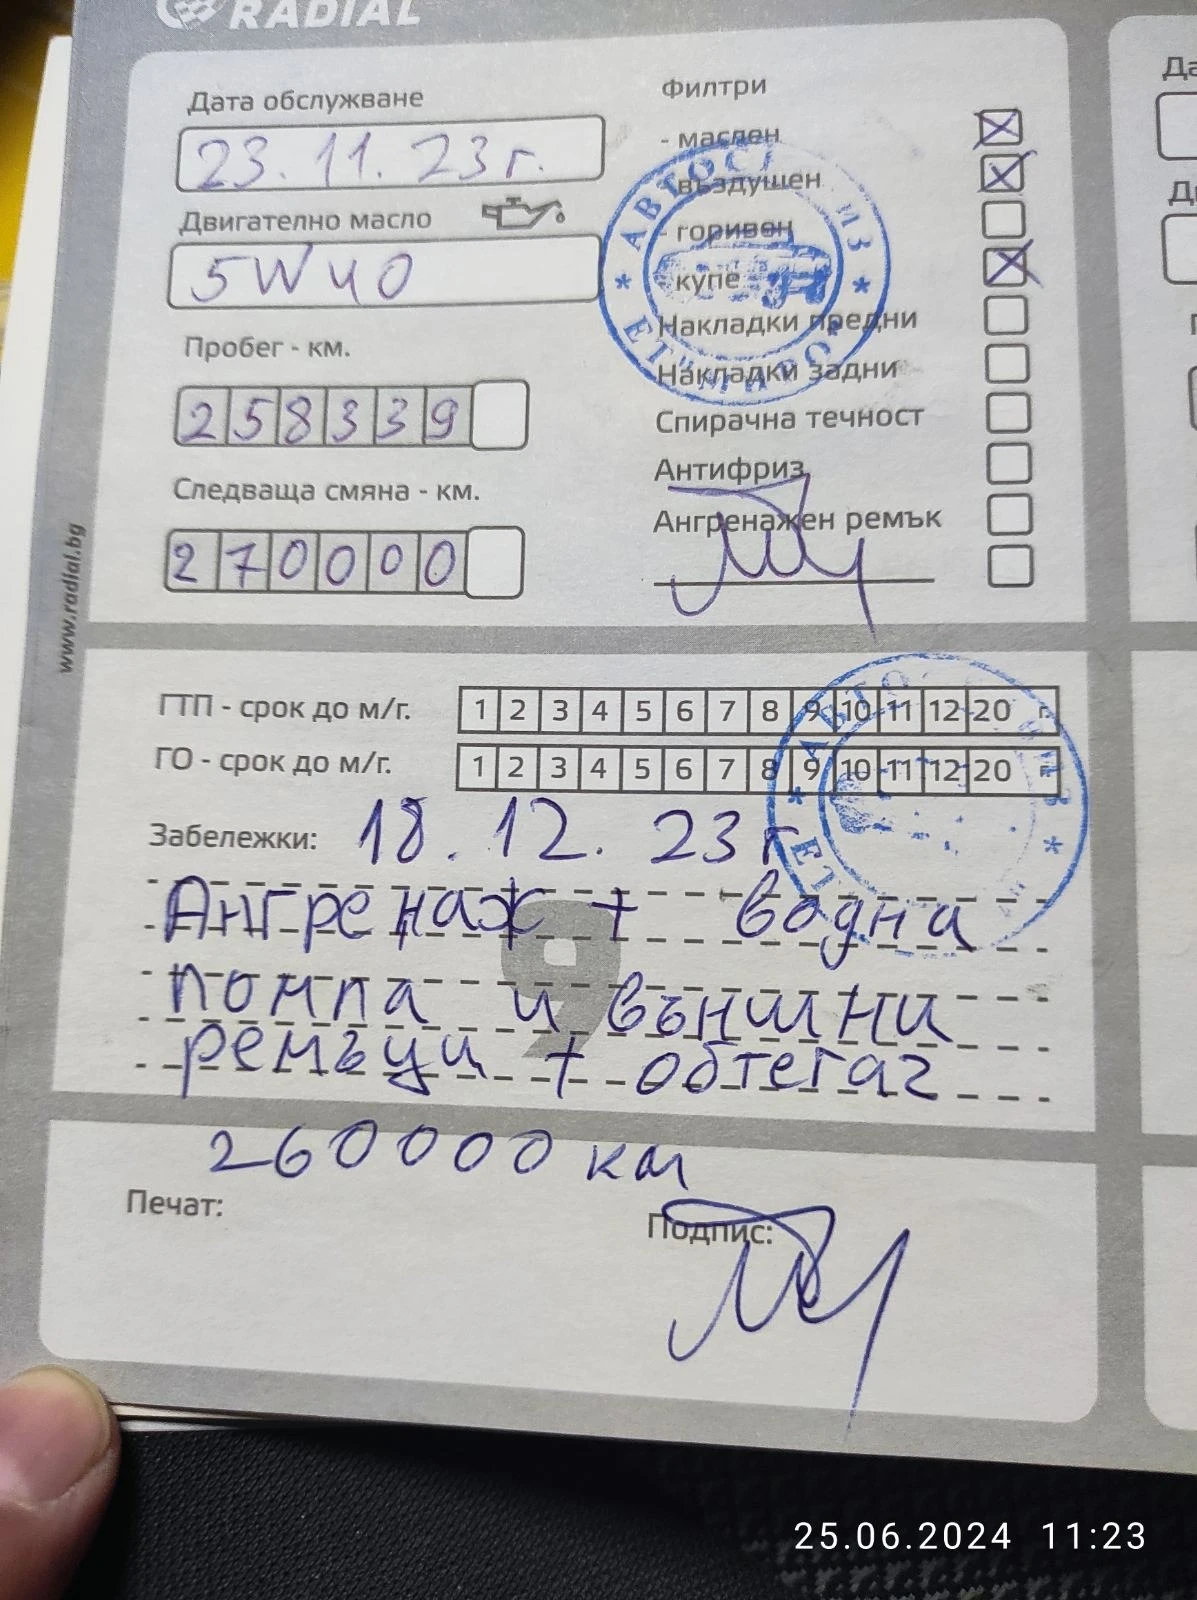 RADIAL
Дата обслужване
23.11.23 г.
Двигателно масло
5W40
Пробег - км.
258339
Следваща смяна - км.
270000
www.radial.bg
Филтри
- маслен
въздушен
- горивен
- купе
Накладки предни
Накладки задни
Спирачна течност
Антифриз
Ангренажен ремък
ГТП - срок до м/г. 1 2 3 4 5 6 7 8 9 10 11 12 20 г.
ГО - срок до м/г. 1 2 3 4 5 6 7 8 9 10 11 12 20
Забележки: 18.12.23 г
Ангренаж + водна
помпа и външни
ремъци + обтегач
9
260000 км
Печат:
Подпис:
Да
25.06.2024 11:23